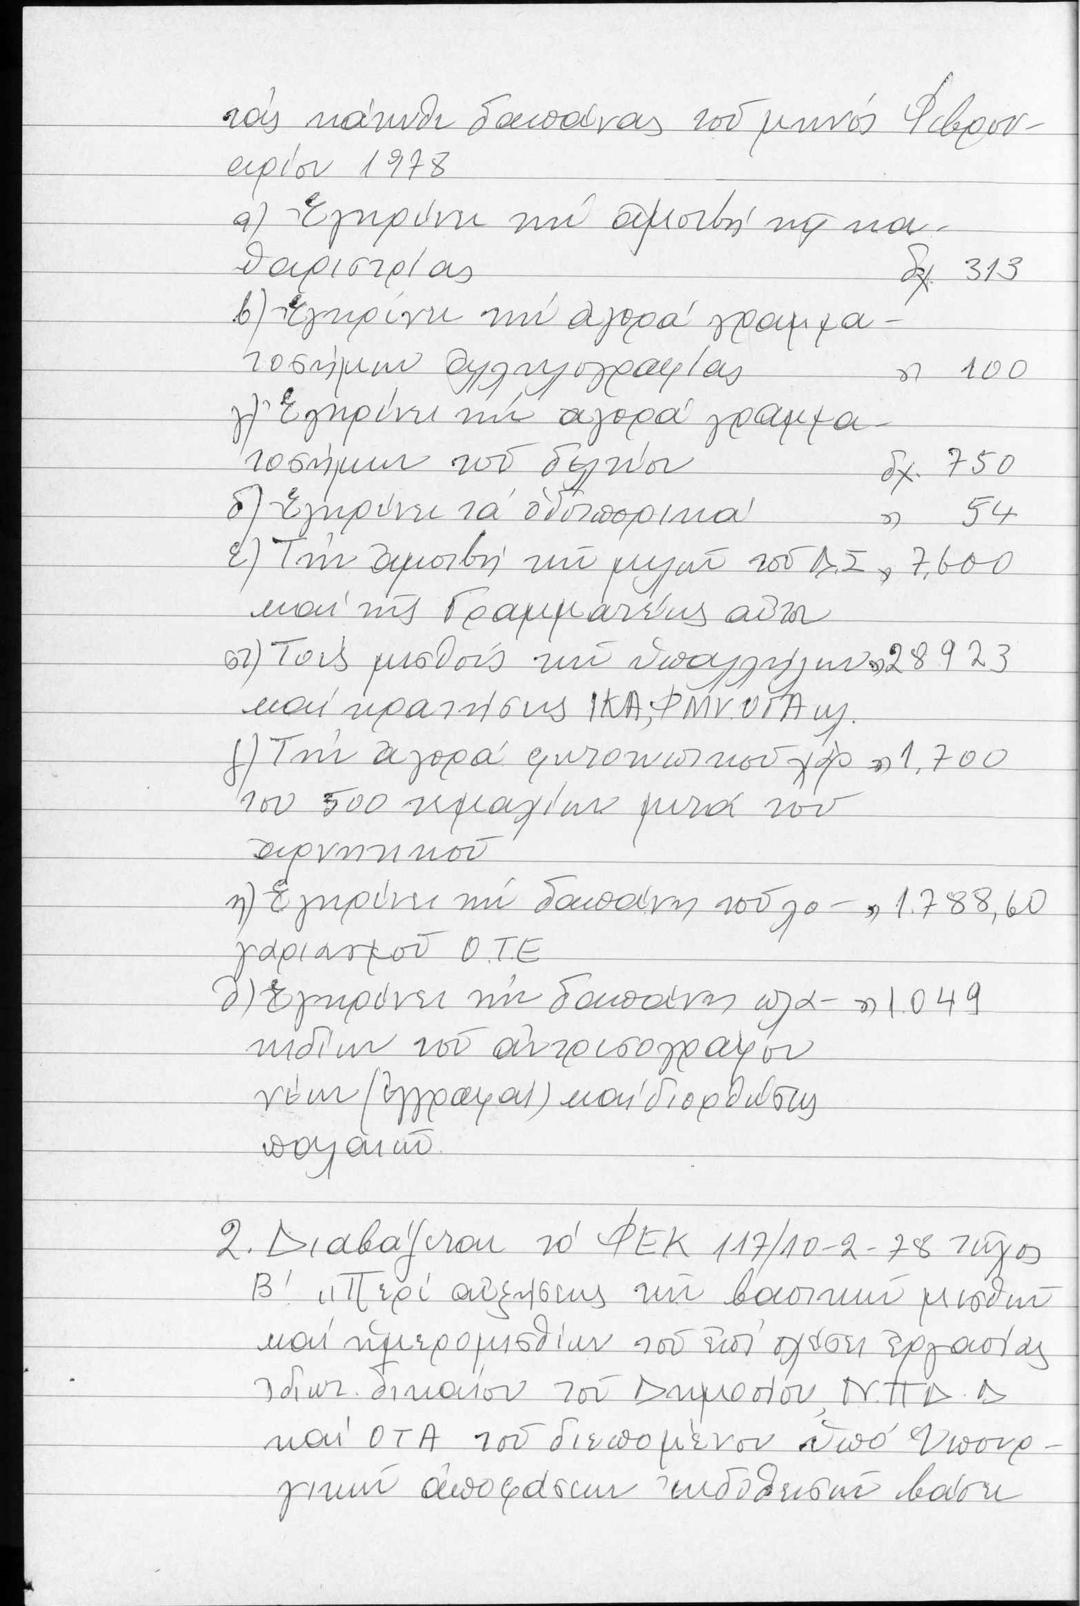 τάς κάτωθι δαπάνας τοῦ μηνός Φεβρου-
αρίου 1978
α) Ἐγκρίνει τήν ἀμοιβή τῆς κα-
θαριστρίας δρχ. 313
β) Ἐγκρίνει τήν ἀγορά γραμμα-
τοσήμων ἀλληλογραφίας " 100
γ) Ἐγκρίνει τήν ἀγορά γραμμα-
τοσήμων τοῦ δελτίου δρχ. 750
δ) Ἐγκρίνει τά ὁδοιπορικά " 54
ε) Τήν ἀμοιβή τῶν μελῶν τοῦ Δ.Σ " 7.600
καί τῆς Γραμματέως αὐτοῦ
στ) Τούς μισθούς τῶν ὑπαλλήλων " 28923
καί κρατήσεις ΙΚΑ, ΦΜΥ. ΟΓΑ κλ.
ζ) Τήν ἀγορά φωτοτυπικοῦ χάρ " 1.700
του 500 τεμαχίων μετά τοῦ
ἀρνητικοῦ
η) Ἐγκρίνει τήν δαπάνη τοῦ λο- " 1.788,60
γαριασμοῦ Ο.Τ.Ε
θ) Ἐγκρίνει τήν δαπάνη πλα- " 1.049
κιδίων τοῦ ἀντρεσογράφου
νέων (ἐγγραφαί) καί διορθώσεις
παλαιῶν.
2. Διαβάζεται τό ΦΕΚ 117/10-2-78 τεῦχος
Β' "Περί αὐξήσεως τῶν βασικῶν μισθῶν
καί ἡμερομισθίων τοῦ ἐπί σχέσει ἐργασίας
ἰδιωτ. δικαίου τοῦ Δημοσίου, Ν.Π.Δ.Δ
καί ΟΤΑ τοῦ διεπομένου ὑπό Ὑπουρ-
γικῶν ἀποφάσεων ἐκδοθεισῶν βάσει